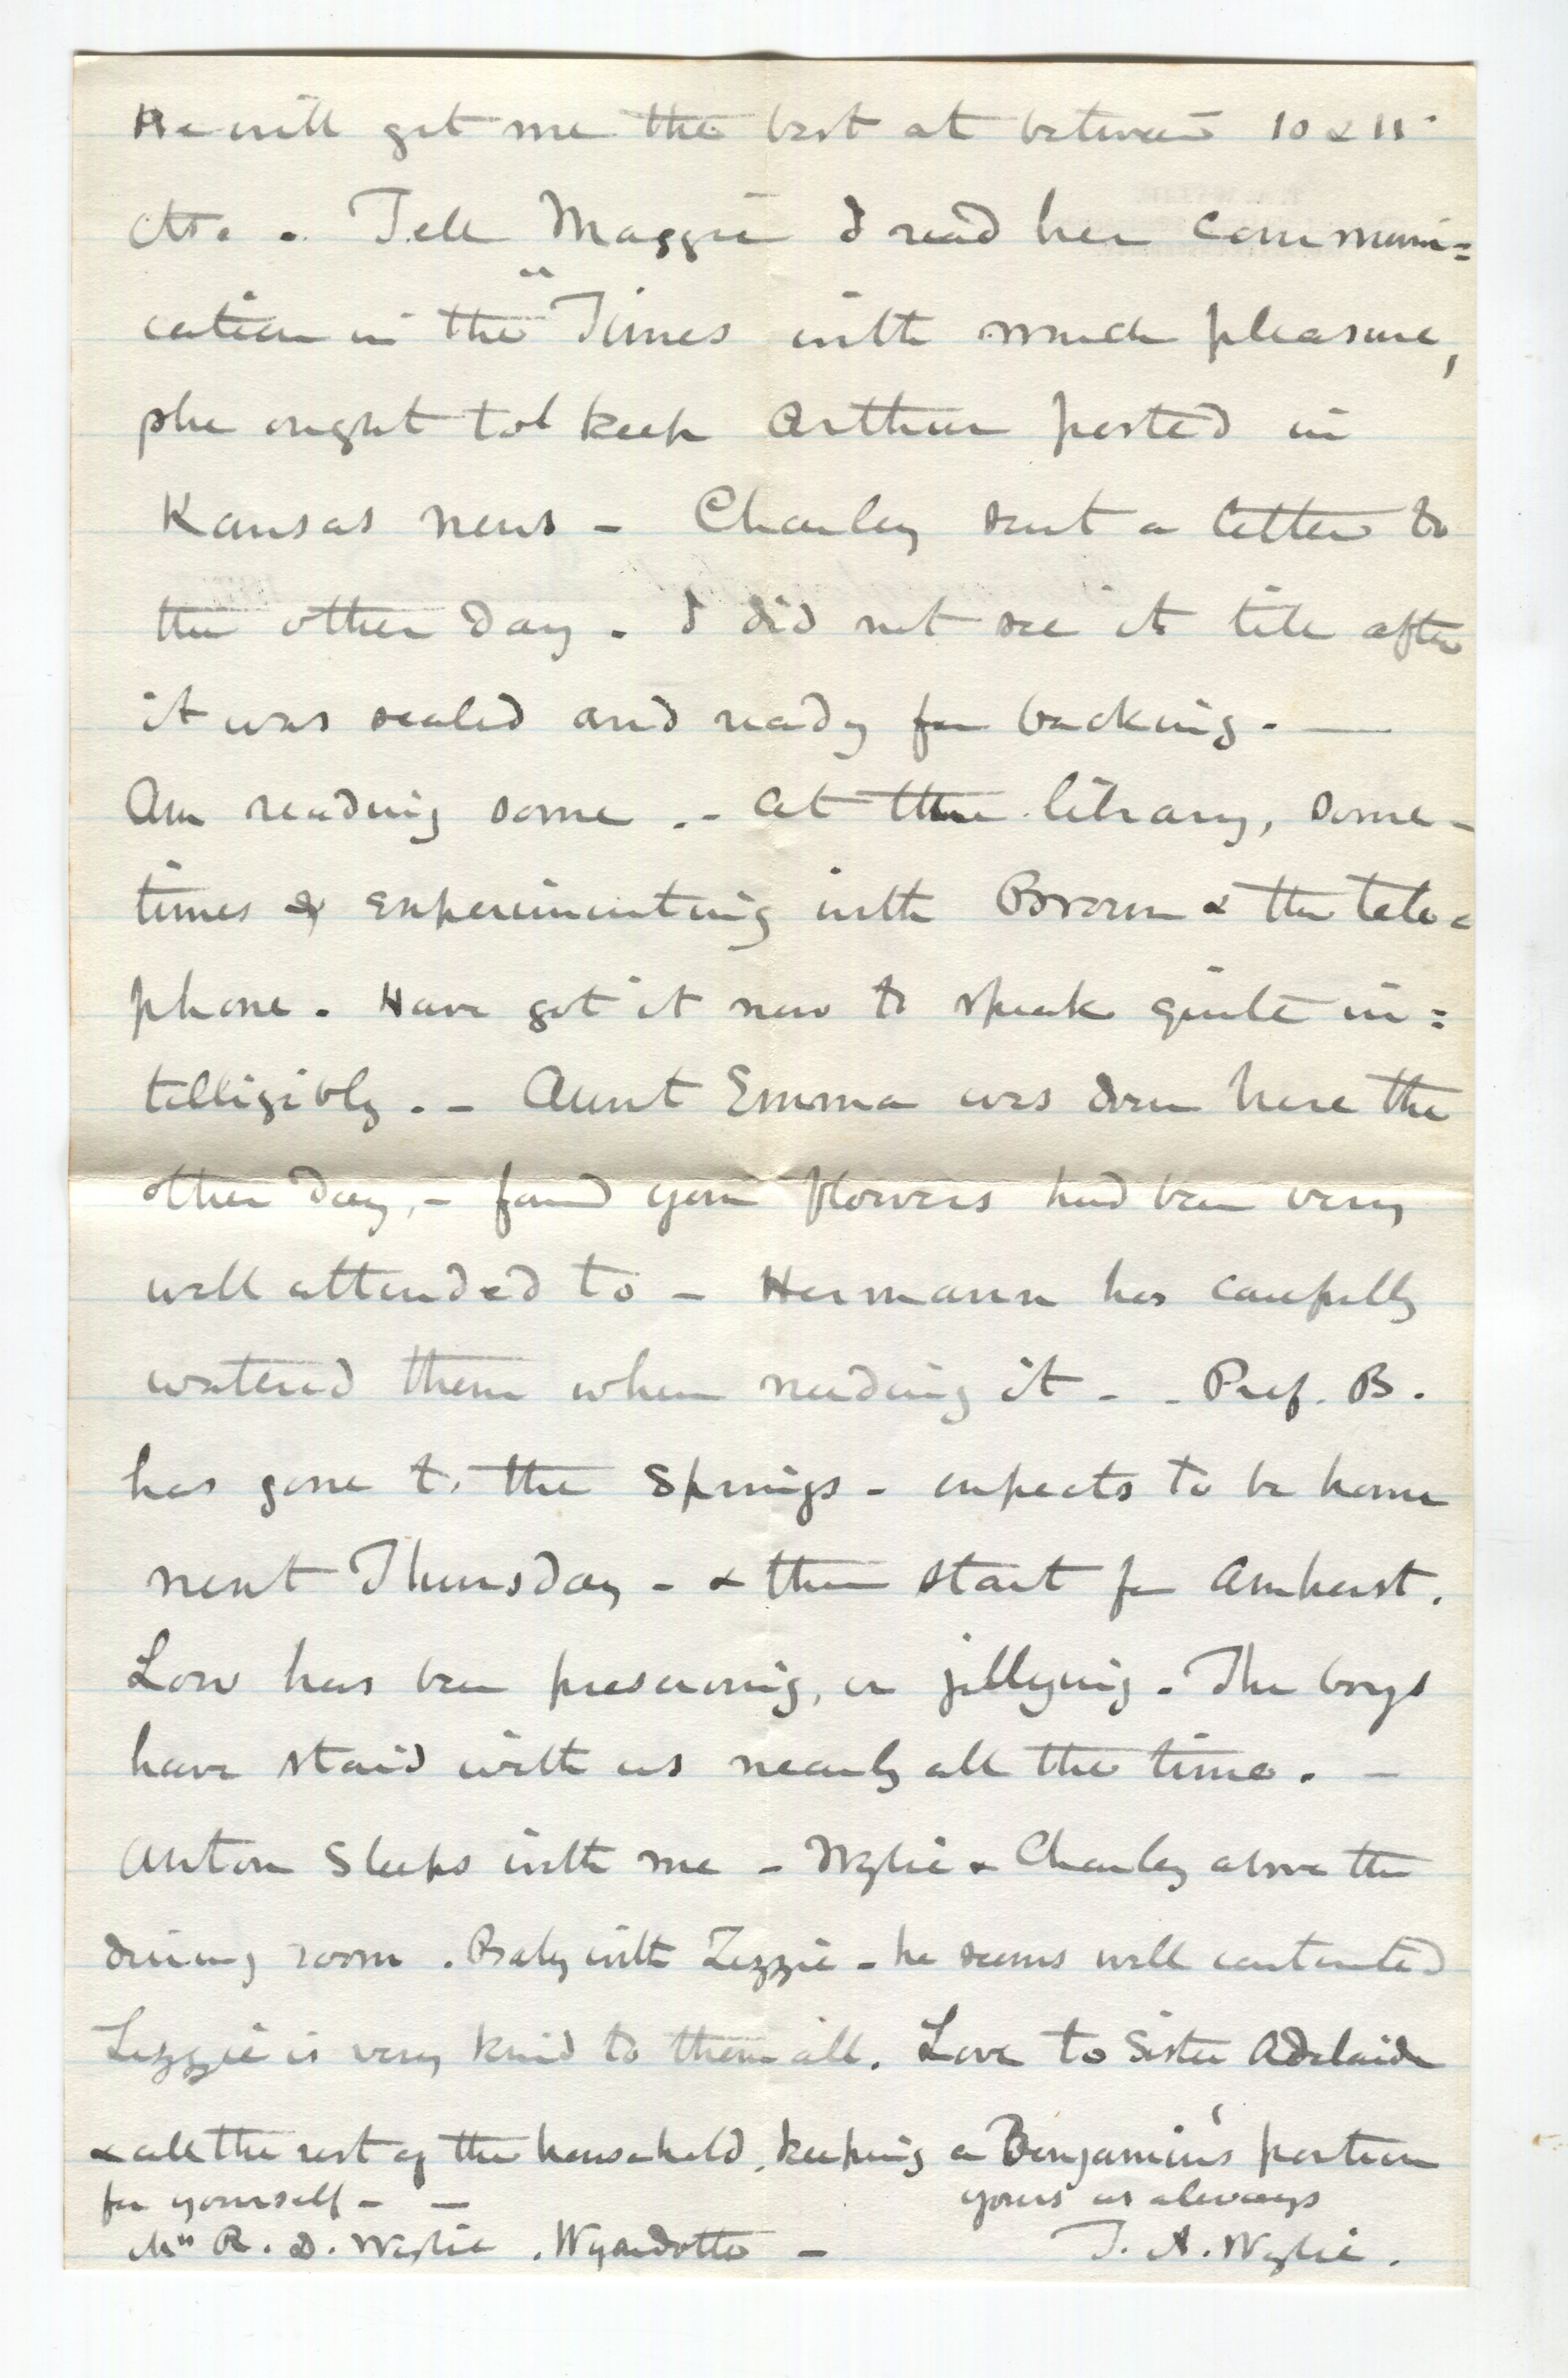 He will get me the best at between 10 & 11
cts. . Tell Maggie I read her communi=
cation in the "Times with much pleasure,
she ought to keep Arthur posted in
Kansas news - Charley sent a letter to
the other day. I did not see it till after
it was sealed and ready for backing. —
Am reading some .- at the library, some-
times & experimenting with Brown & the tele=
phone. Have got it now to speak quite in=
telligibly. - Aunt Emma was down here the
other day, - found your flowers had been very
well attended to - Hermann has carefully
watered them when needing it - - Prof. B.
has gone to the Springs - expects to be home
next Thursday - & then start for Amherst.
Lou has been preserving, or jellying. The boys
have staid with us nearly all the time. -
Anton sleeps with me - Wylie & Charley above the
dining room. Baby with Lizzie - he seems well contented
Lizzie is very kind to them all. Love to Sister Adelaide
& all the rest of the household, keeping a Benjamin's portion
for yourself - -
yours as always
Mrs R. D. Wylie . Wyandotte -
T. A. Wylie.